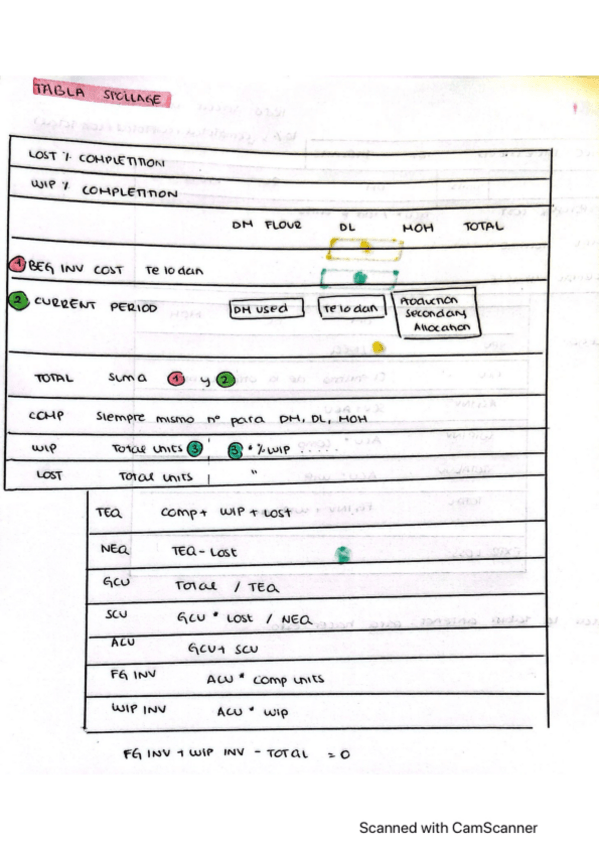 TABLA SPOILLAGE
LOST % COMPLETITION
WIP % COMPLETITION
DM FLOUR DL MOH TOTAL
1 BEG INV COST Te lo dan
2 CURRENT PERIOD DM used Te lo dan Production Secondary Allocation
TOTAL suma 1 y 2
COMP Siempre mismo nº para DM, DL, MOH
WIP Total units 3 3 * % WIP .....
LOST Total units "
TEQ Comp + WIP + Lost
NEQ TEQ - Lost
GCU Total / TEQ
SCU GCU * Lost / NEQ
ACU GCU + SCU
FG INV ACU * Comp units
WIP INV ACU * WIP
FG INV + WIP INV - TOTAL = 0
Scanned with CamScanner